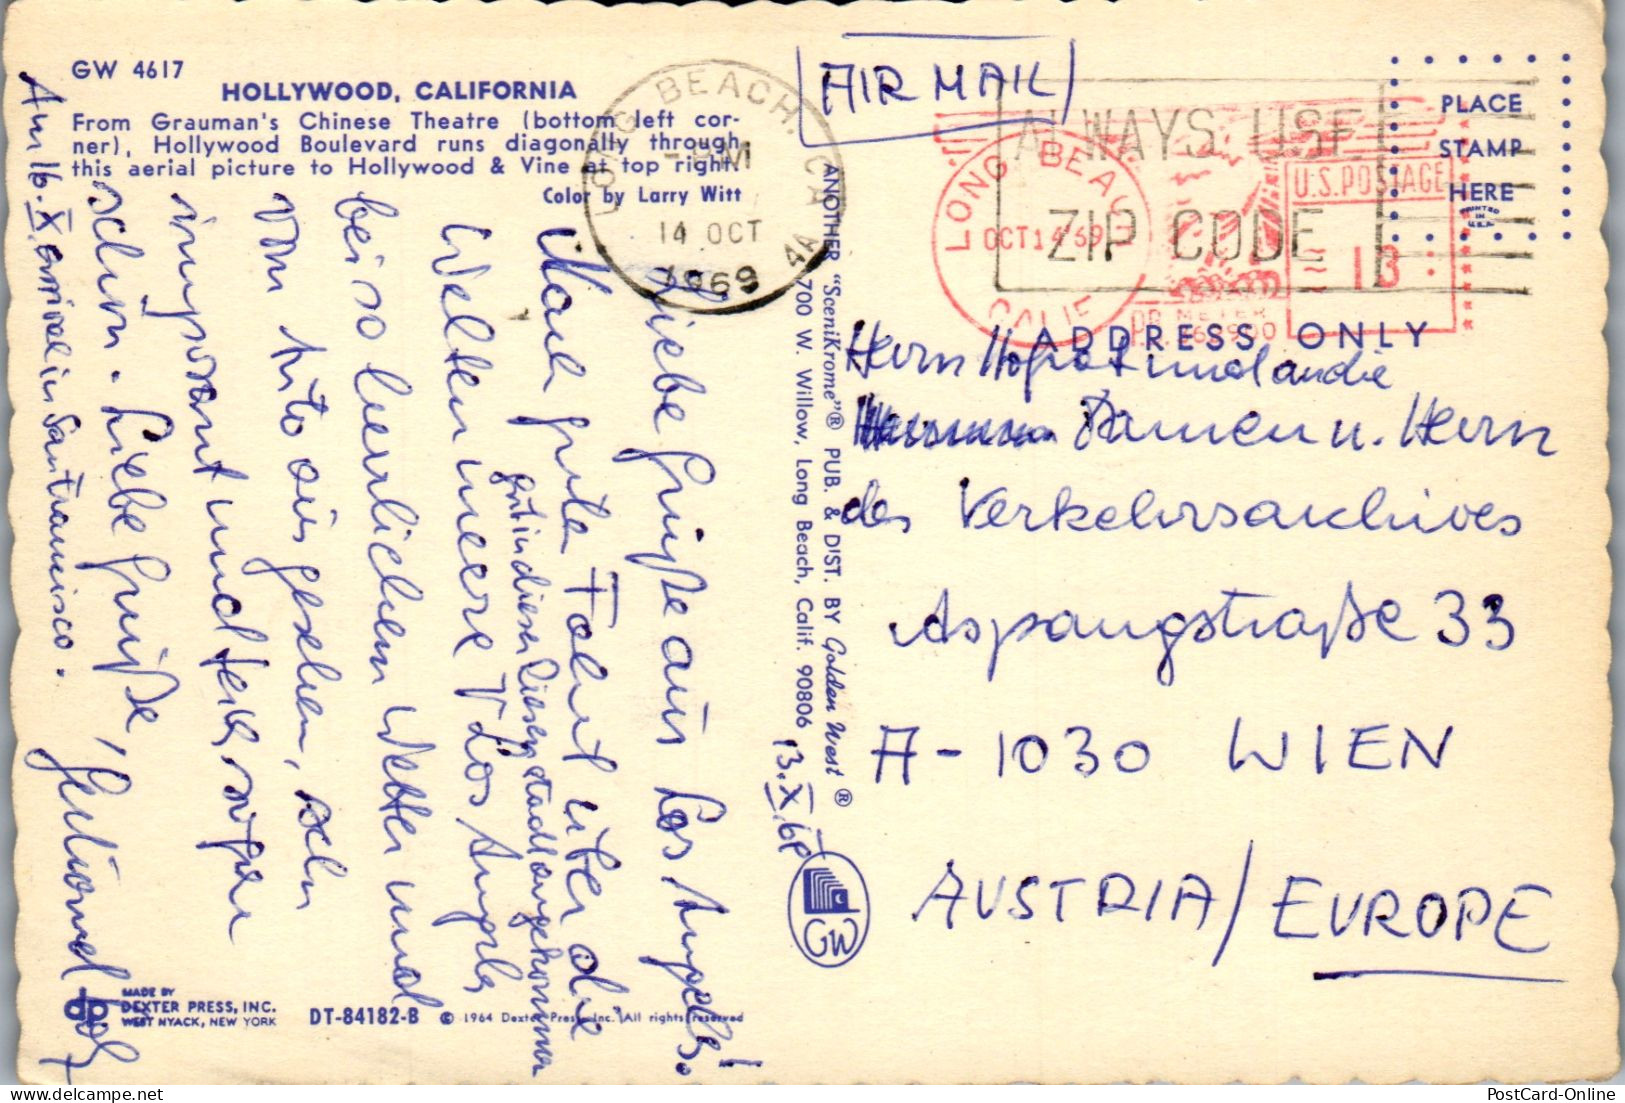 GW 4617
HOLLYWOOD, CALIFORNIA
From Grauman's Chinese Theatre (bottom left cor-
ner), Hollywood Boulevard runs diagonally through
this aerial picture to Hollywood & Vine at top right.
Color by Larry Witt
LONG BEACH, CA
PM
14 OCT
1969
AIR MAIL
ALWAYS USE
ZIP CODE
LONG BEACH
OCT 14 '69
CALIF
U.S. POSTAGE
13
PB METER
PLACE
STAMP
HERE
PRINTED
IN
U.S.A.
ADDRESS ONLY
Herrn Hofrat und an die
Damen u. Herrn
des Verkehrsarchives
Aspangstraße 33
A-1030 WIEN
AUSTRIA/EUROPE
13.X.69
Liebe Grüße aus Los Angeles!
Nach guter Fahrt über die
Weltmeere Los Angeles
gut in dieser Riesenstadt angekommen
bei so herrlichem Wetter und
vom Auto aus gesehen, sehr
imposant und teils sogar
schön. Liebe Grüße,
Am 16.X. arrival in San Franzisco.
ANOTHER "SceniKrome"® PUB. & DIST. BY Golden West®
700 W. Willow, Long Beach, Calif. 90806
GW
dp
MADE BY
DEXTER PRESS, INC.
WEST NYACK, NEW YORK
DT-84182-B © 1964 Dexter Press, Inc. All rights reserved
PostCard-Online